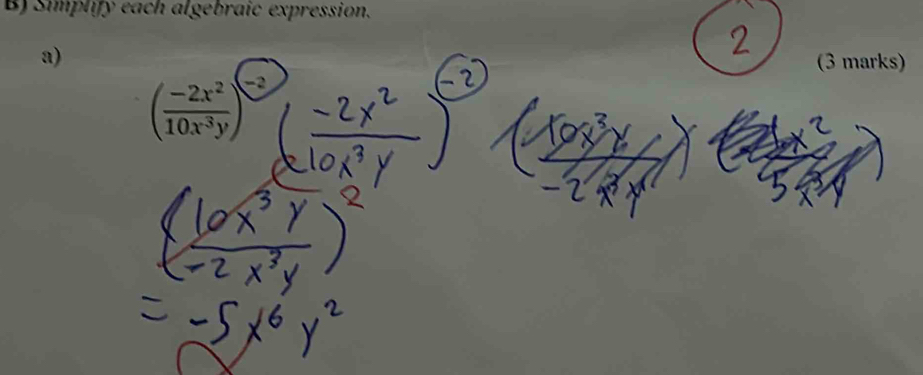 B) Simplify each algebraic expression.
2
a) (3 marks)
(-2x²/10x³y)⁻² (-2x²/10x³y)⁻²
(10x³y/-2x³y)²
= -5x⁶y²